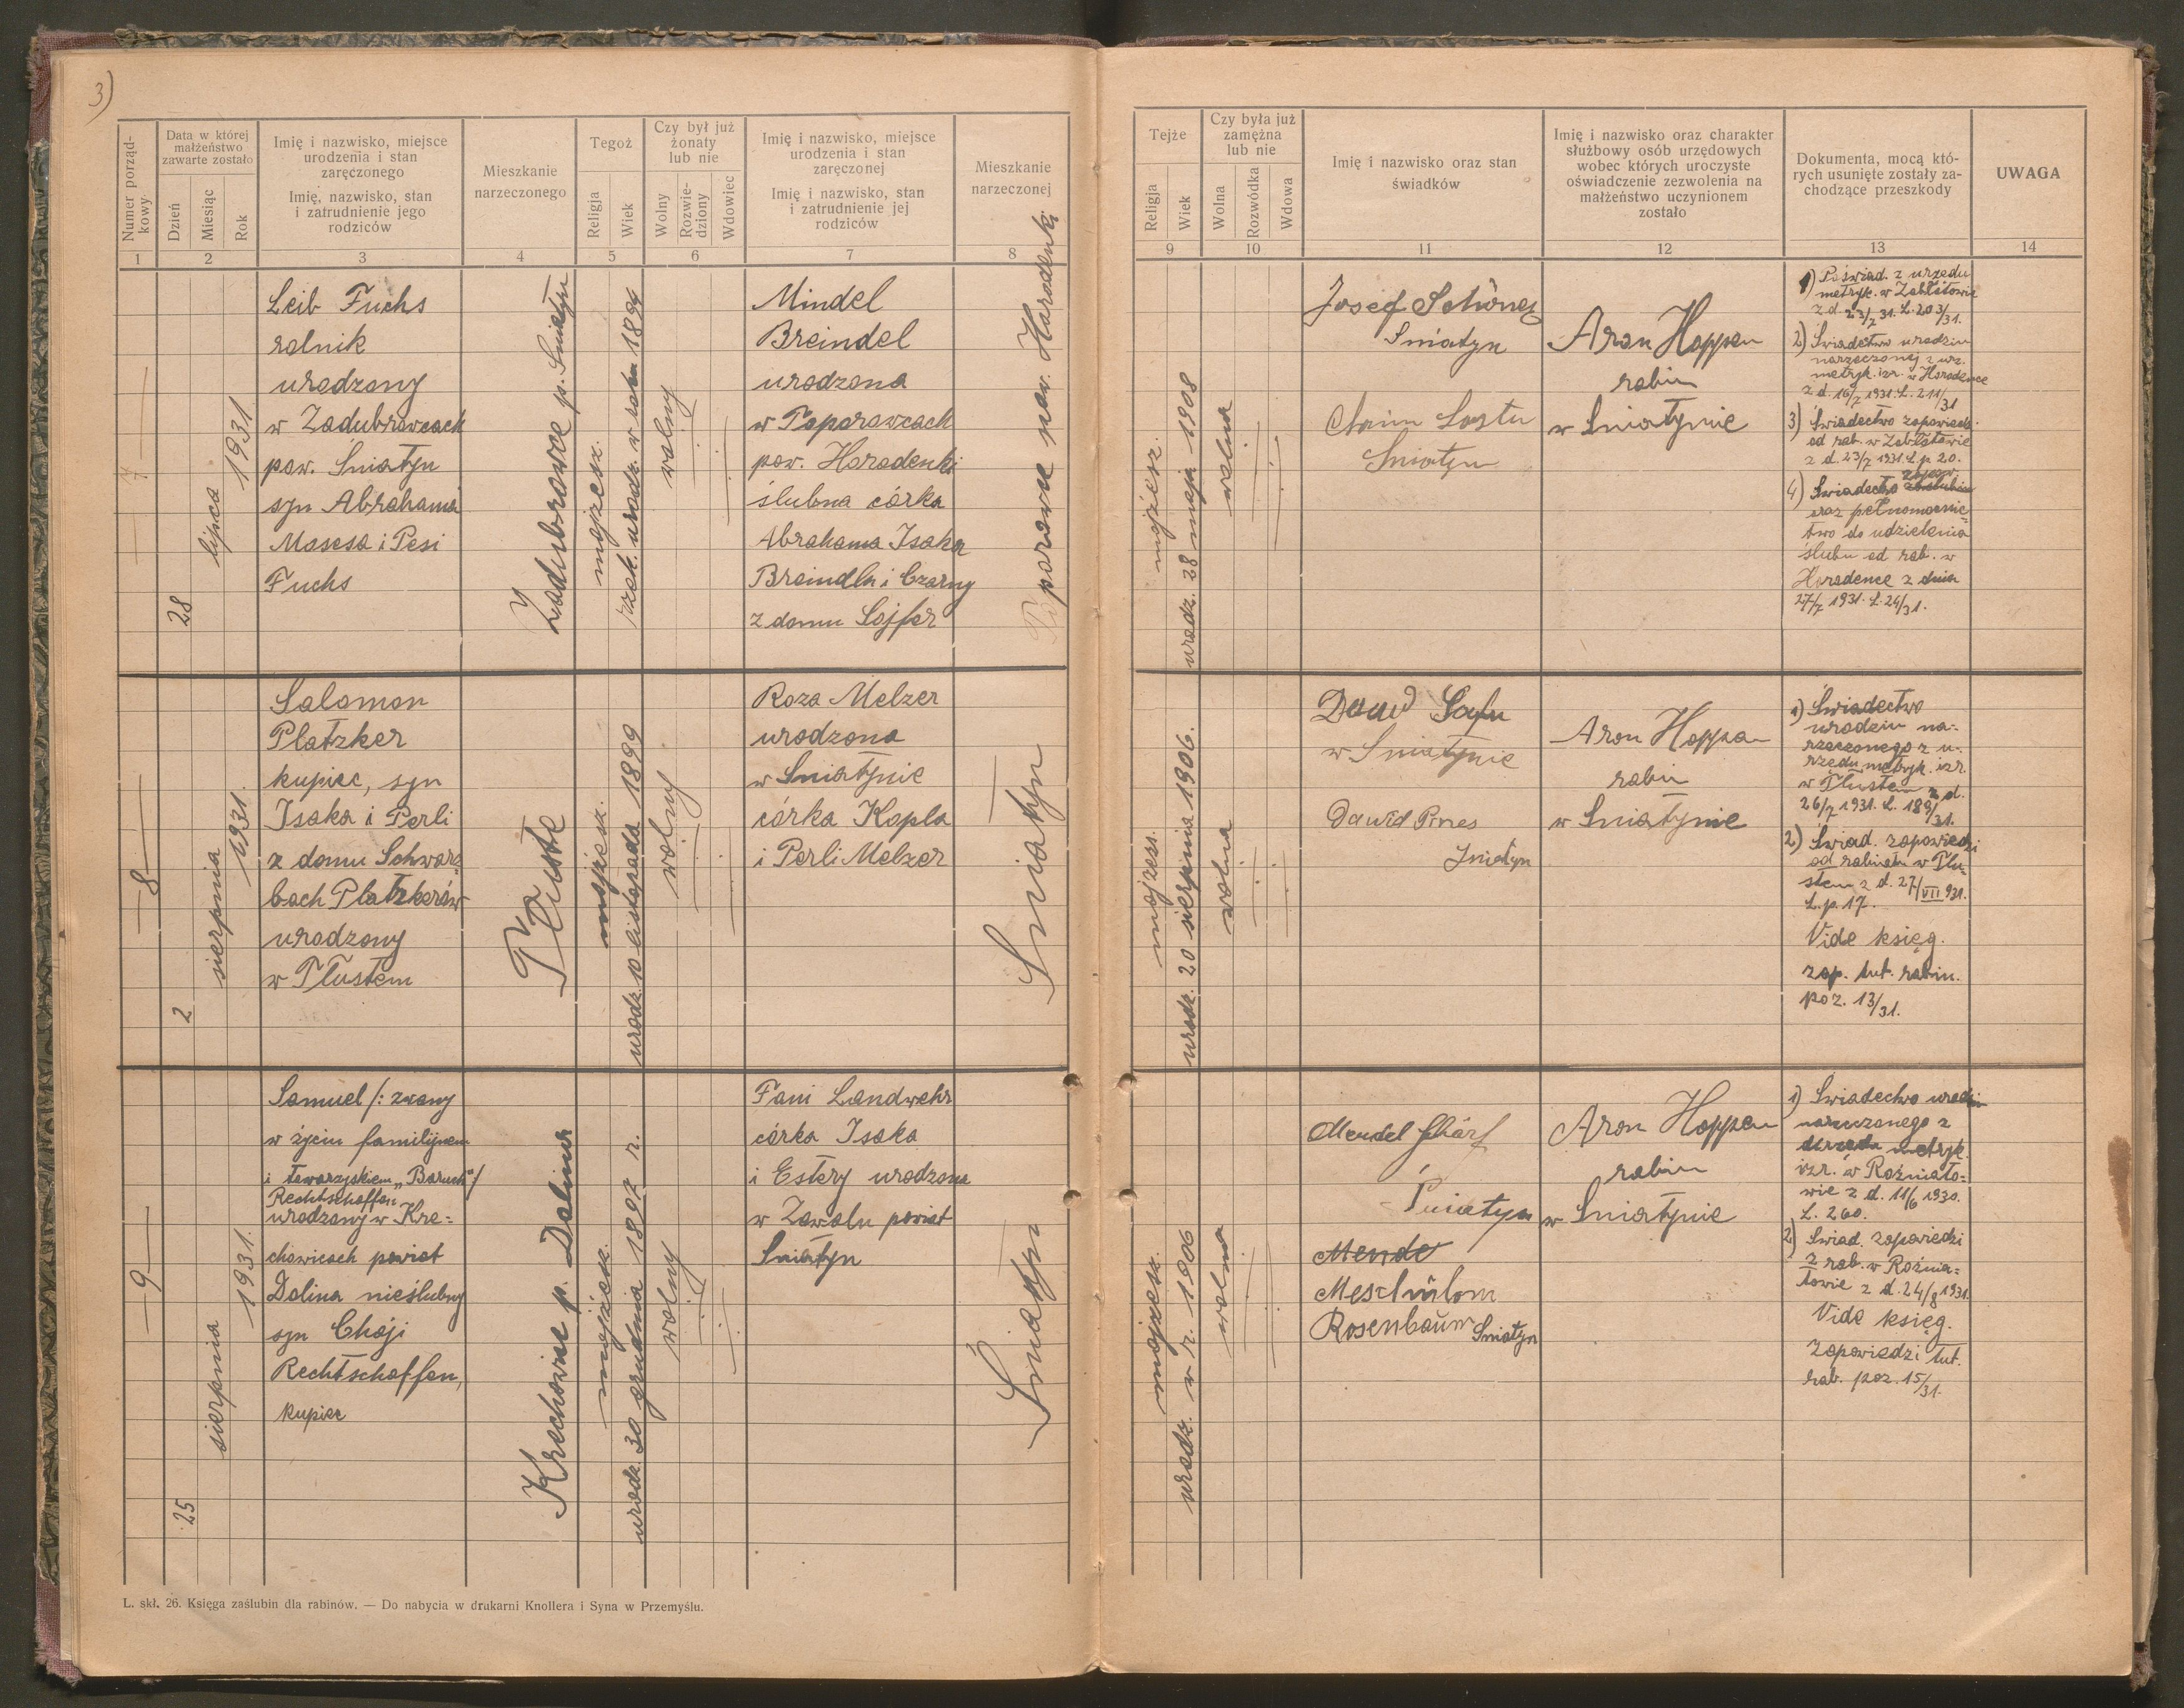 3)
Numer porząd-
kowy
Data w której
małżeństwo
zawarte zostało
Dzień
Miesiąc
Rok
Imię i nazwisko, miejsce
urodzenia i stan
zaręczonego
Imię, nazwisko, stan
i zatrudnienie jego
rodziców
Mieszkanie
narzeczonego
Tegoż
Religja
Wiek
Czy był już
żonaty
lub nie
Wolny
Rozwie-
dziony
Wdowiec
Imię i nazwisko, miejsce
urodzenia i stan
zaręczonej
Imię i nazwisko, stan
i zatrudnienie jej
rodziców
Mieszkanie
narzeczonej
1 2 3 4 5 6 7 8
Tejże
Religja
Wiek
Czy była już
zamężna
lub nie
Wolna
Rozwódka
Wdowa
Imię i nazwisko oraz stan
świadków
Imię i nazwisko oraz charakter
służbowy osób urzędowych
wobec których uroczyste
oświadczenie zezwolenia na
małżeństwo uczynionem
zostało
Dokumenta, mocą któ-
rych usunięte zostały za-
chodzące przeszkody
UWAGA
9 10 11 12 13 14
7
28
lipca
1931
Leib Fuchs
rolnik
urodzony
w Zadubrowcach
pow. Śniatyn
syn Abrahama
Mosesa i Pesi
Fuchs
Zadubrowce p. Śniatyn
mojżesz.
urodz. w roku 1894
wolny
Mindel
Breindel
urodzona
w Toporowcach
pow. Horodenki
ślubna córka
Abrahama Isaka
Breindla i Czarny
z domu Sojfer
porowce pow. Horodenki
mojżesz.
urodz. 28 maja 1908
wolna
Josef Schöner
Śniatyn
Chaim
Śniatyn
Aron Hoppen
rabin
w Śniatynie
1) Poświad. z urzędu
metryk. w Zabłotowie
z d. 23/7 31. L. 203/31.
2) Świadectwo urodzin
narzeczonej z urz.
metryk. izr. w Horodence
z d. 16/7 1931. L. 211/31
3) Świadectwo zapowiedzi
od rab. w Zabłotowie
z d. 23/7 1931. L.p. 20.
4) Świadectwo zapow.
oraz pełnomocnic-
two do udzielenia
ślubu od rab. w
Horodence z dnia
27/7 1931. L. 24/31.
8
2
sierpnia
1931.
Salomon
Platzker
kupiec, syn
Isaka i Perli
z domu Schwarz-
bach Platzkerów
urodzony
w Tłustem
Tłuste
mojżesz.
urodz. 10 listopada 1899
wolny
Roza Melzer
urodzona
w Śniatynie
córka Kopla
i Perli Melzer
Śniatyn
mojżesz.
urodz. 20 sierpnia 1906.
wolna
Dawid
w Śniatynie
Dawid Pines
Śniatyn
Aron Hoppen
rabin
w Śniatynie
1) Świadectwo
urodzin na-
rzeczonego z u-
rzędu metryk. izr.
w Tłustem z d.
26/7 1931. L. 189/31.
2) Świad. zapowiedzi
od rabinatu w Tłu-
stem z d. 27/VII 931.
L.p. 17.
Vide księg.
zap. tut. rabin.
poz. 13/31.
9
25
sierpnia
1931.
Samuel /: zwany
w życiu familijnem
i towarzyskiem „Baruch":/
Rechtschaffen
urodzony w Kre-
chowicach powiat
Dolina nieślubny
syn Chaji
Rechtschaffen,
kupiec
Krechowice p. Dolina
mojżesz.
urodz. 30 grudnia 1897 r.
wolny
Fani Landwehr
córka Isaka
i Estery urodzona
w Zawalu powiat
Śniatyn
Śniatyn
mojżesz.
urodz. w r. 1906
wolna
Mendel Schärf
Śniatyn
Mende
Meschulom
Rosenbaum Śniatyn
Aron Hoppen
rabin
w Śniatynie
1) Świadectwo urodzin
narzeczonego z
urzędu metryk.
izr. w Rożniato-
wie z d. 11/6 1930.
L. 260.
2) Świad. zapowiedzi
z rab. w Rożnia-
towie z d. 24/8 1931.
Vide księg.
zapowiedzi tut.
rab. poz. 15/31.
L. skł. 26. Księga zaślubin dla rabinów. — Do nabycia w drukarni Knollera i Syna w Przemyślu.